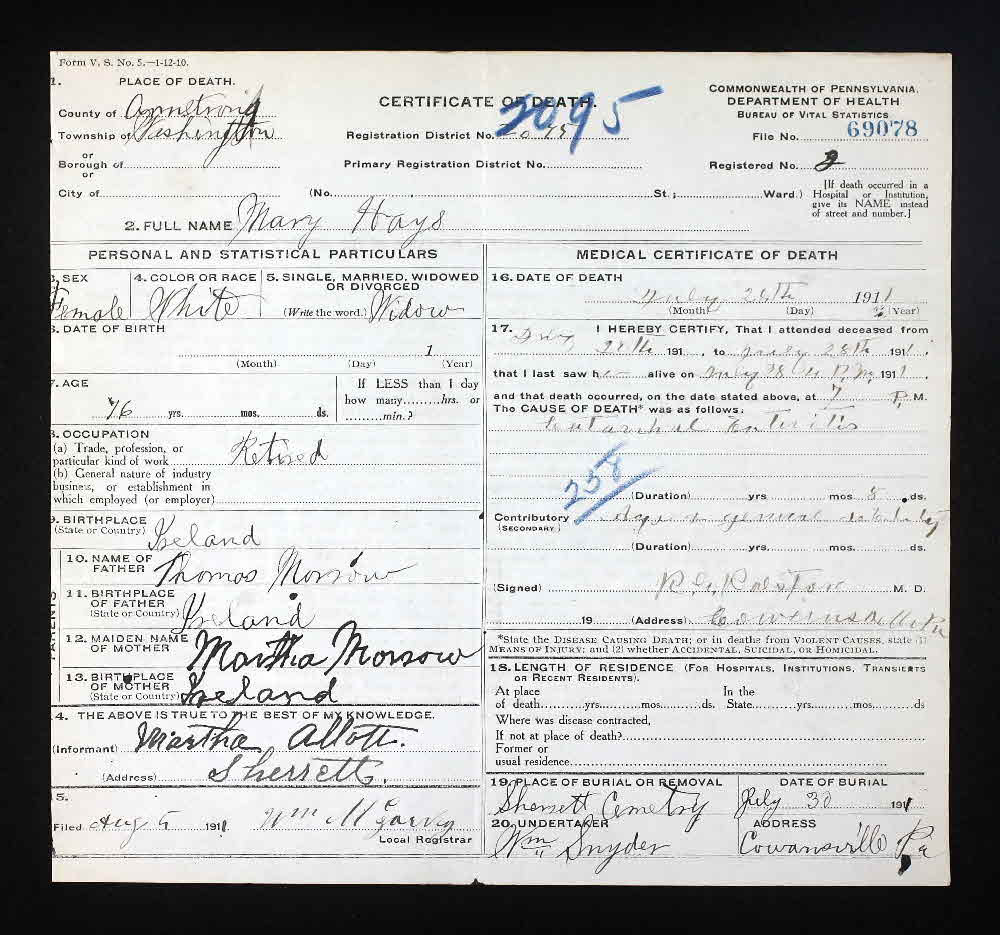 Form V. S. No. 5.—1-12-10.
1. PLACE OF DEATH.
County of Armstrong
Township of Washington
or
Borough of
or
City of
CERTIFICATE OF DEATH.
2095
Registration District No.
Primary Registration District No.
(No. St.; Ward.)
COMMONWEALTH OF PENNSYLVANIA.
DEPARTMENT OF HEALTH
BUREAU OF VITAL STATISTICS
File No. 69078
Registered No.
[If death occurred in a
Hospital or Institution,
give its NAME instead
of street and number.]
2. FULL NAME Mary Hays
PERSONAL AND STATISTICAL PARTICULARS
3. SEX
Female
4. COLOR OR RACE
White
5. SINGLE, MARRIED, WIDOWED
OR DIVORCED
(Write the word.) Widow
6. DATE OF BIRTH
1
(Month) (Day) (Year)
7. AGE
76 yrs. mos. ds.
If LESS than 1 day
how many hrs. or
min.?
8. OCCUPATION
(a) Trade, profession, or
particular kind of work Retired
(b) General nature of industry
business, or establishment in
which employed (or employer)
9. BIRTHPLACE
(State or Country) Ireland
PARENTS
10. NAME OF
FATHER Thomas Morrow
11. BIRTHPLACE
OF FATHER
(State or Country) Ireland
12. MAIDEN NAME
OF MOTHER Martha Morrow
13. BIRTHPLACE
OF MOTHER
(State or Country) Ireland
14. THE ABOVE IS TRUE TO THE BEST OF MY KNOWLEDGE.
(Informant) Martha Allott.
(Address) Sherrett.
15.
Filed Aug 5 1911. Wm McGarvey
Local Registrar
MEDICAL CERTIFICATE OF DEATH
16. DATE OF DEATH
July 1911
(Month) (Day) (Year)
17. I HEREBY CERTIFY, That I attended deceased from
191 , to July 28th 1911.
that I last saw h alive on July 28 4 P.M. 1911
and that death occurred, on the date stated above, at 7 P. M.
The CAUSE OF DEATH* was as follows:
Catarrhal Enteritis
258
(Duration) yrs mos 8 ds.
Contributory general debility
(SECONDARY)
(Duration) yrs. mos. ds.
(Signed) Ralston M. D.
19 (Address) Cowansville Pa
*State the DISEASE CAUSING DEATH; or in deaths from VIOLENT CAUSES, state (1)
MEANS OF INJURY; and (2) whether ACCIDENTAL, SUICIDAL, OR HOMICIDAL.
18. LENGTH OF RESIDENCE (FOR HOSPITALS, INSTITUTIONS, TRANSIENTS
OR RECENT RESIDENTS).
At place In the
of death yrs. mos. ds. State yrs. mos. ds
Where was disease contracted,
If not at place of death?
Former or
usual residence
19. PLACE OF BURIAL OR REMOVAL
Sherrett Cemetry
DATE OF BURIAL
July 30 1911
20. UNDERTAKER
Wm Snyder
ADDRESS
Cowansville Pa